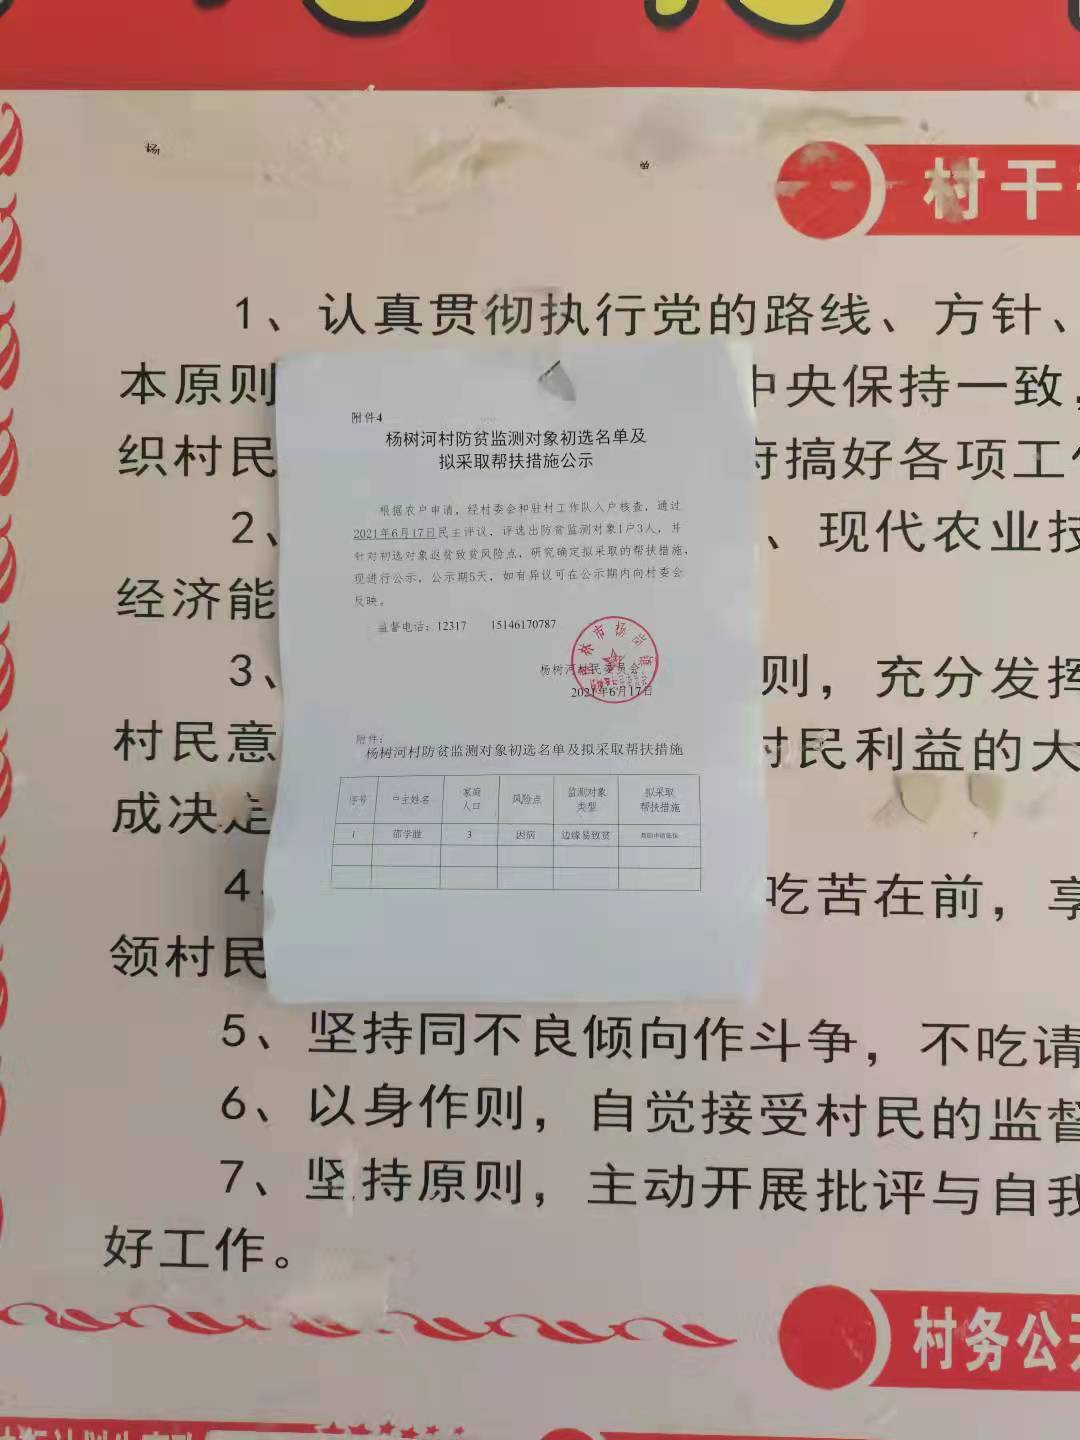 杨
单
村干
1、认真贯彻执行党的路线、方针、
本原则
中央保持一致，
织村民
府搞好各项工作
2、
、现代农业技
经济能
3、
则，充分发挥
村民意
村民利益的大
成决定
4、
吃苦在前，享
领村民
5、坚持同不良倾向作斗争，不吃请
6、以身作则，自觉接受村民的监督
7、坚持原则，主动开展批评与自我
好工作。
村务公开
附件4
杨树河村防贫监测对象初选名单及
拟采取帮扶措施公示
根据农户申请，经村委会和驻村工作队入户核查，通过
2021年6月17日民主评议，评选出防贫监测对象1户3人，并
针对初选对象返贫致贫风险点，研究确定拟采取的帮扶措施，
现进行公示，公示期5天，如有异议可在公示期内向村委会
反映。
监督电话：12317 15146170787
杨树河村民委员会
2021年6月17日
附件：
杨树河村防贫监测对象初选名单及拟采取帮扶措施
序号 户主姓名 家庭人口 风险点 监测对象类型 拟采取帮扶措施
1 邵学胜 3 因病 边缘易致贫